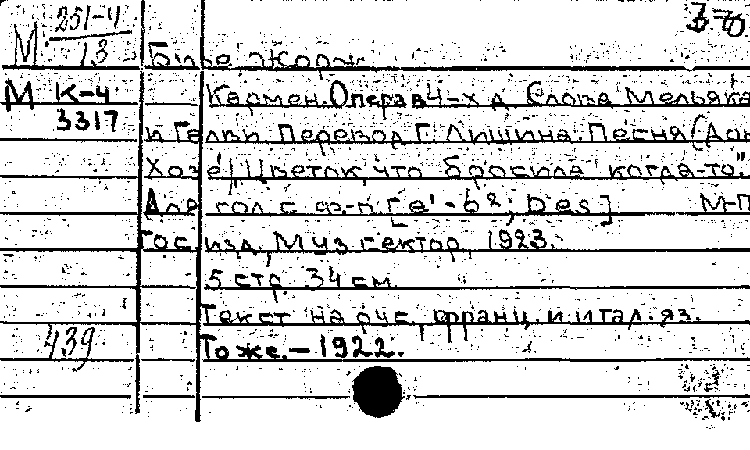 251-4 370
М 13 Бизе, Жорж
М К-4 Кармен. Опера в 4-х д. Слова Мельяка
3317 и Галеви. Перевод Г. Лишина. Песня (Дон
Хозе) "Цветок, что бросила когда-то".
Для гол. с ф-п. [e'-b²; Des] М-П
Гос. изд., Муз. сектор, 1923.
5 стр. 34 см.
Текст на рус., франц. и итал. яз.
439 То же. — 1922.